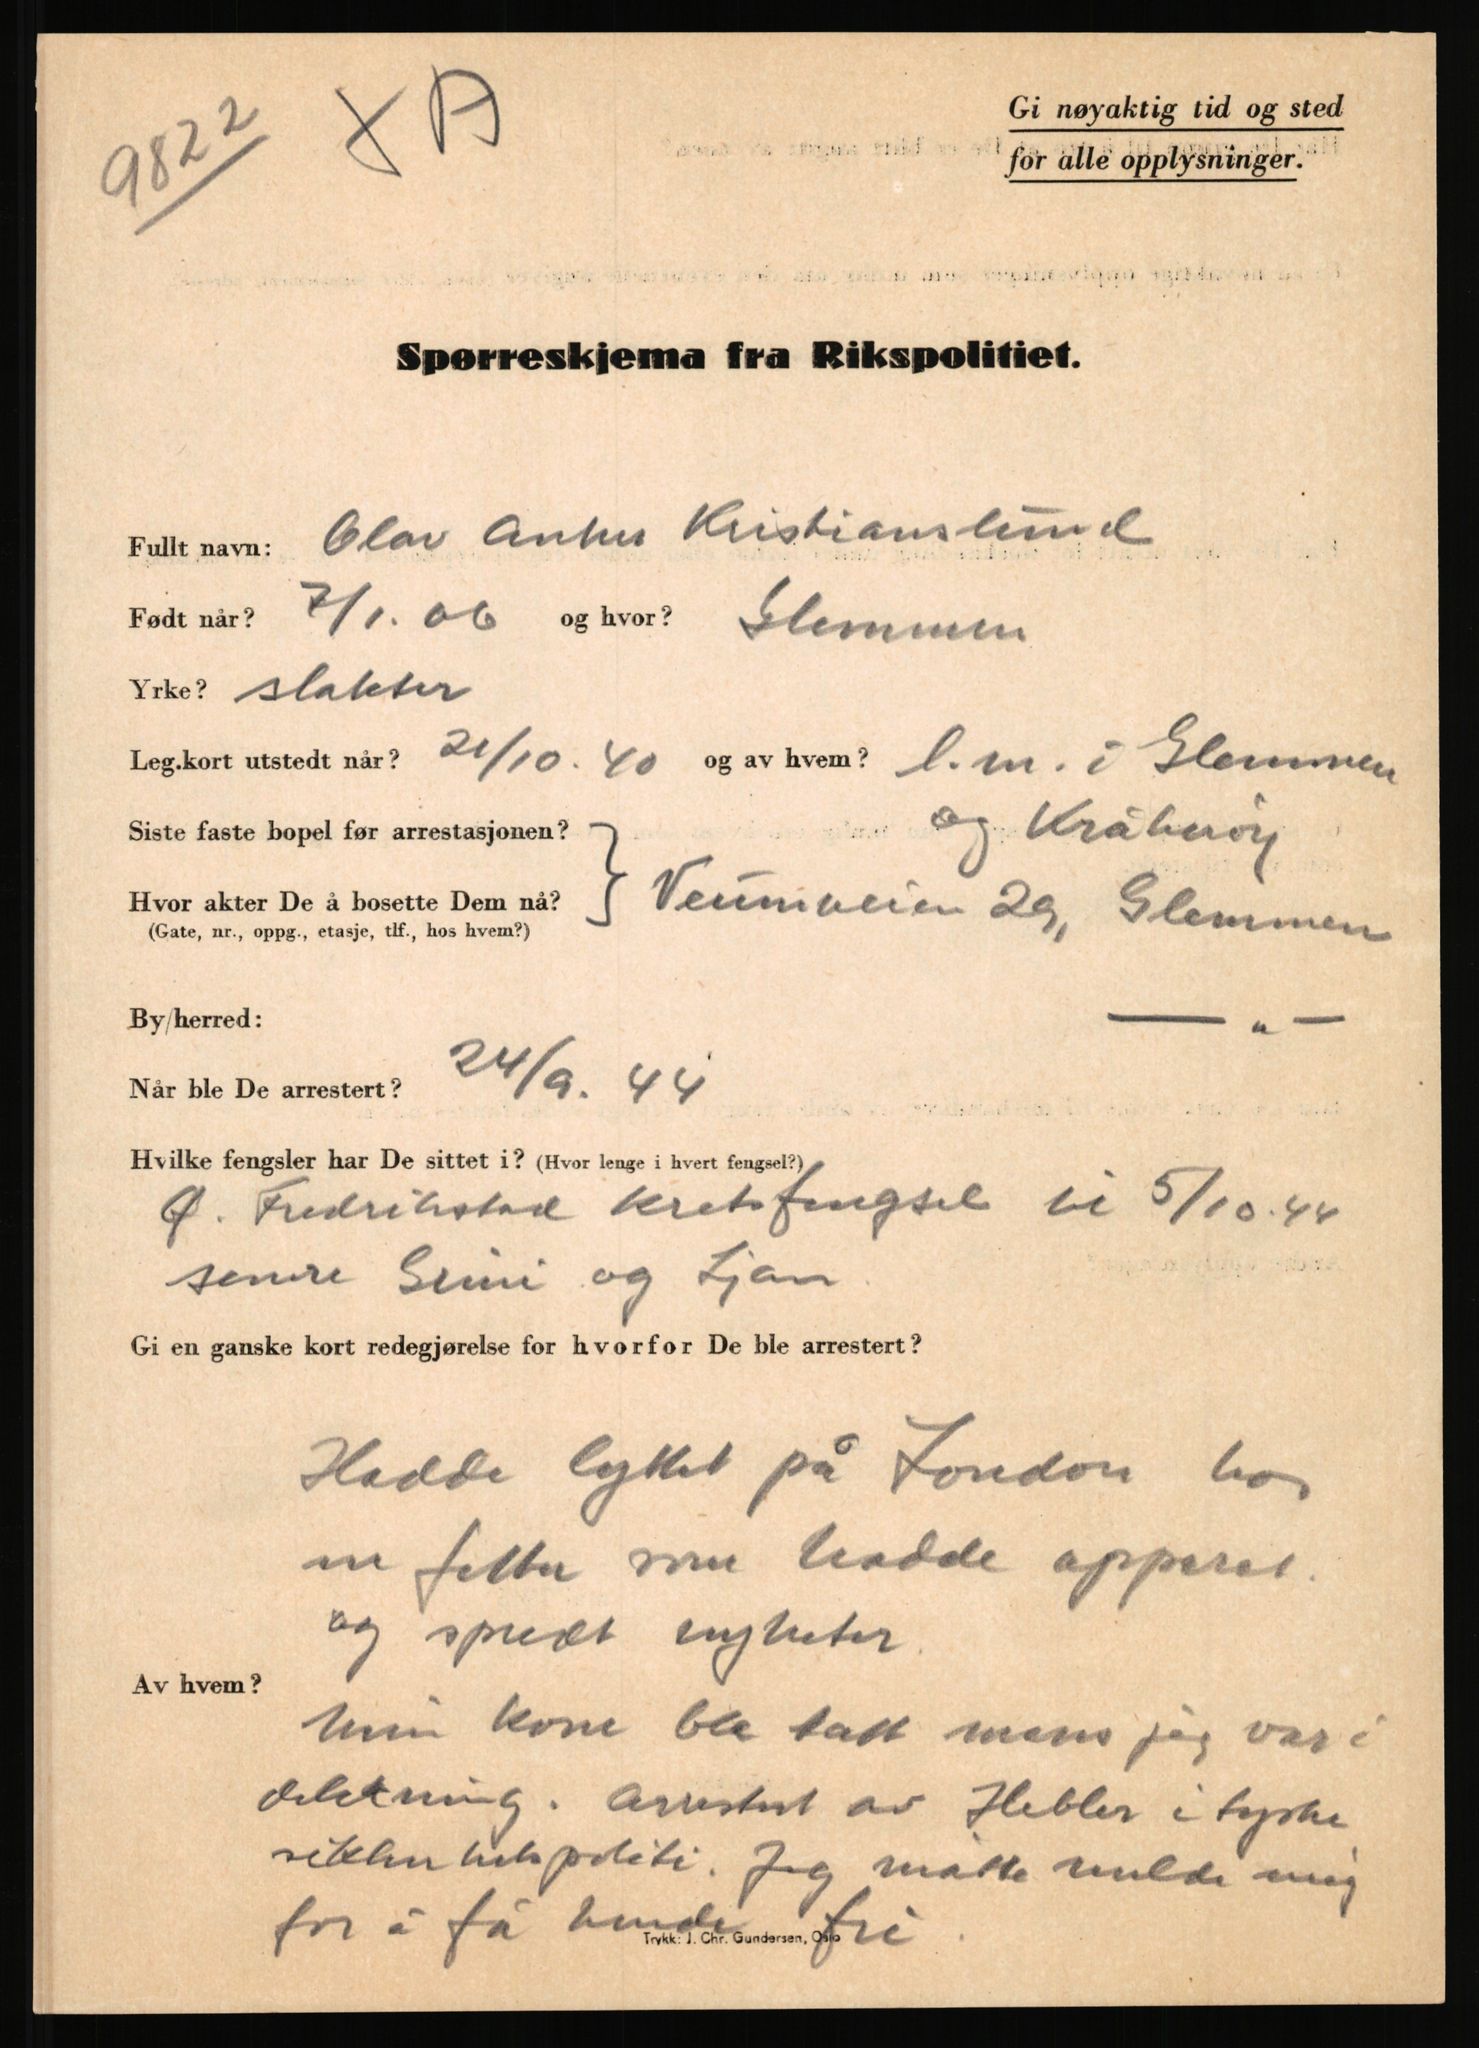 9822
X A
Gi nøyaktig tid og sted
for alle opplysninger.
Spørreskjema fra Rikspolitiet.
Fullt navn: Olav Anker Kristianslund
Født når? 7/1. 06 og hvor? Glemmen
Yrke? slakter
Leg.kort utstedt når? 21/10. 40 og av hvem? l.m. i Glemmen
og Kråkerøy
Siste faste bopel før arrestasjonen?
Hvor akter De å bosette Dem nå? } Veumveien 29, Glemmen
(Gate, nr., oppg., etasje, tlf., hos hvem?)
By/herred: — " —
Når ble De arrestert? 24/9. 44
Hvilke fengsler har De sittet i? (Hvor lenge i hvert fengsel?)
Ø. Fredrikstad kretsfengsel til 5/10.44
senere Grini og Ljan
Gi en ganske kort redegjørelse for hvorfor De ble arrestert?
Hadde lyttet på London hos
en fetter som hadde apparat.
og spredt nyheter.
Av hvem?
Min kone ble tatt mens jeg var i
dekning. Arrestert av Hebler i tyske
sikkerhetspoliti. Jeg måtte melde mig
for å få hende fri.
Trykk: J. Chr. Gundersen, Oslo